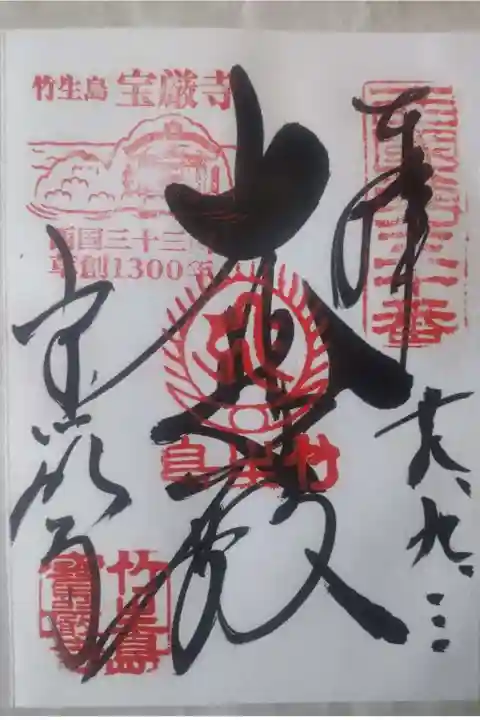 奉拝
西国三十番
九、三
大悲殿
竹生島
竹生島 宝厳寺
西国三十三所
草創1300年
宝厳寺
竹生島